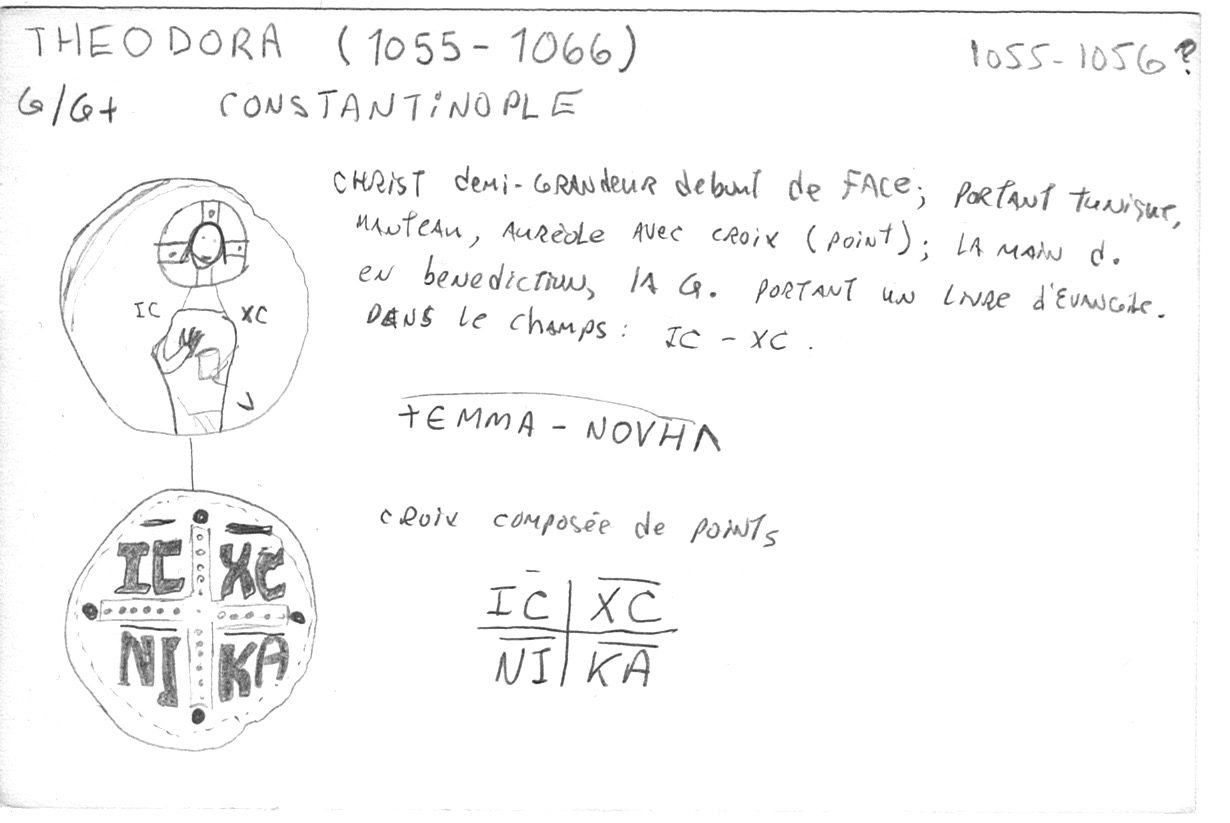 THEODORA (1055-1066)
1055-1056?
G/G+ CONSTANTINOPLE
CHRIST demi-GRANdeUR debout de FACE; PORTANT TUNiQUE,
MANTEAU, AURÉOLE AVEC CROIX (POINT); LA MAIN d.
EN bENEDICTION, LA G. PORTANT UN LIVRE d'EVANGILE.
DANS LE CHAMPS: IC - XC.
IC XC
+EMMA - NOVHΛ
CROIX COMPOSÉE de POINTS
IC XC
NI KA
IC XC
NI KA